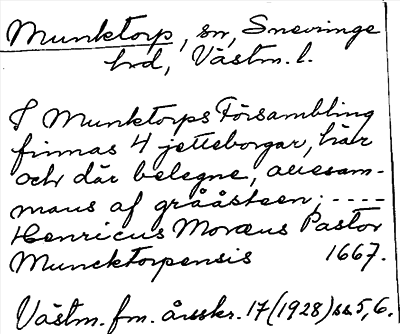 Munktorp, sn, Snevringe
hrd, Västm. l.
I Munktorps Försambling
finnas 4 jetteborgar, här
och där belegne, allesam-
mans af grååsteen; ----
Henricus Moræus Pastor
Muncktorpensis 1667.
Västm. fm. årsskr. 17 (1928) ss 5, 6.